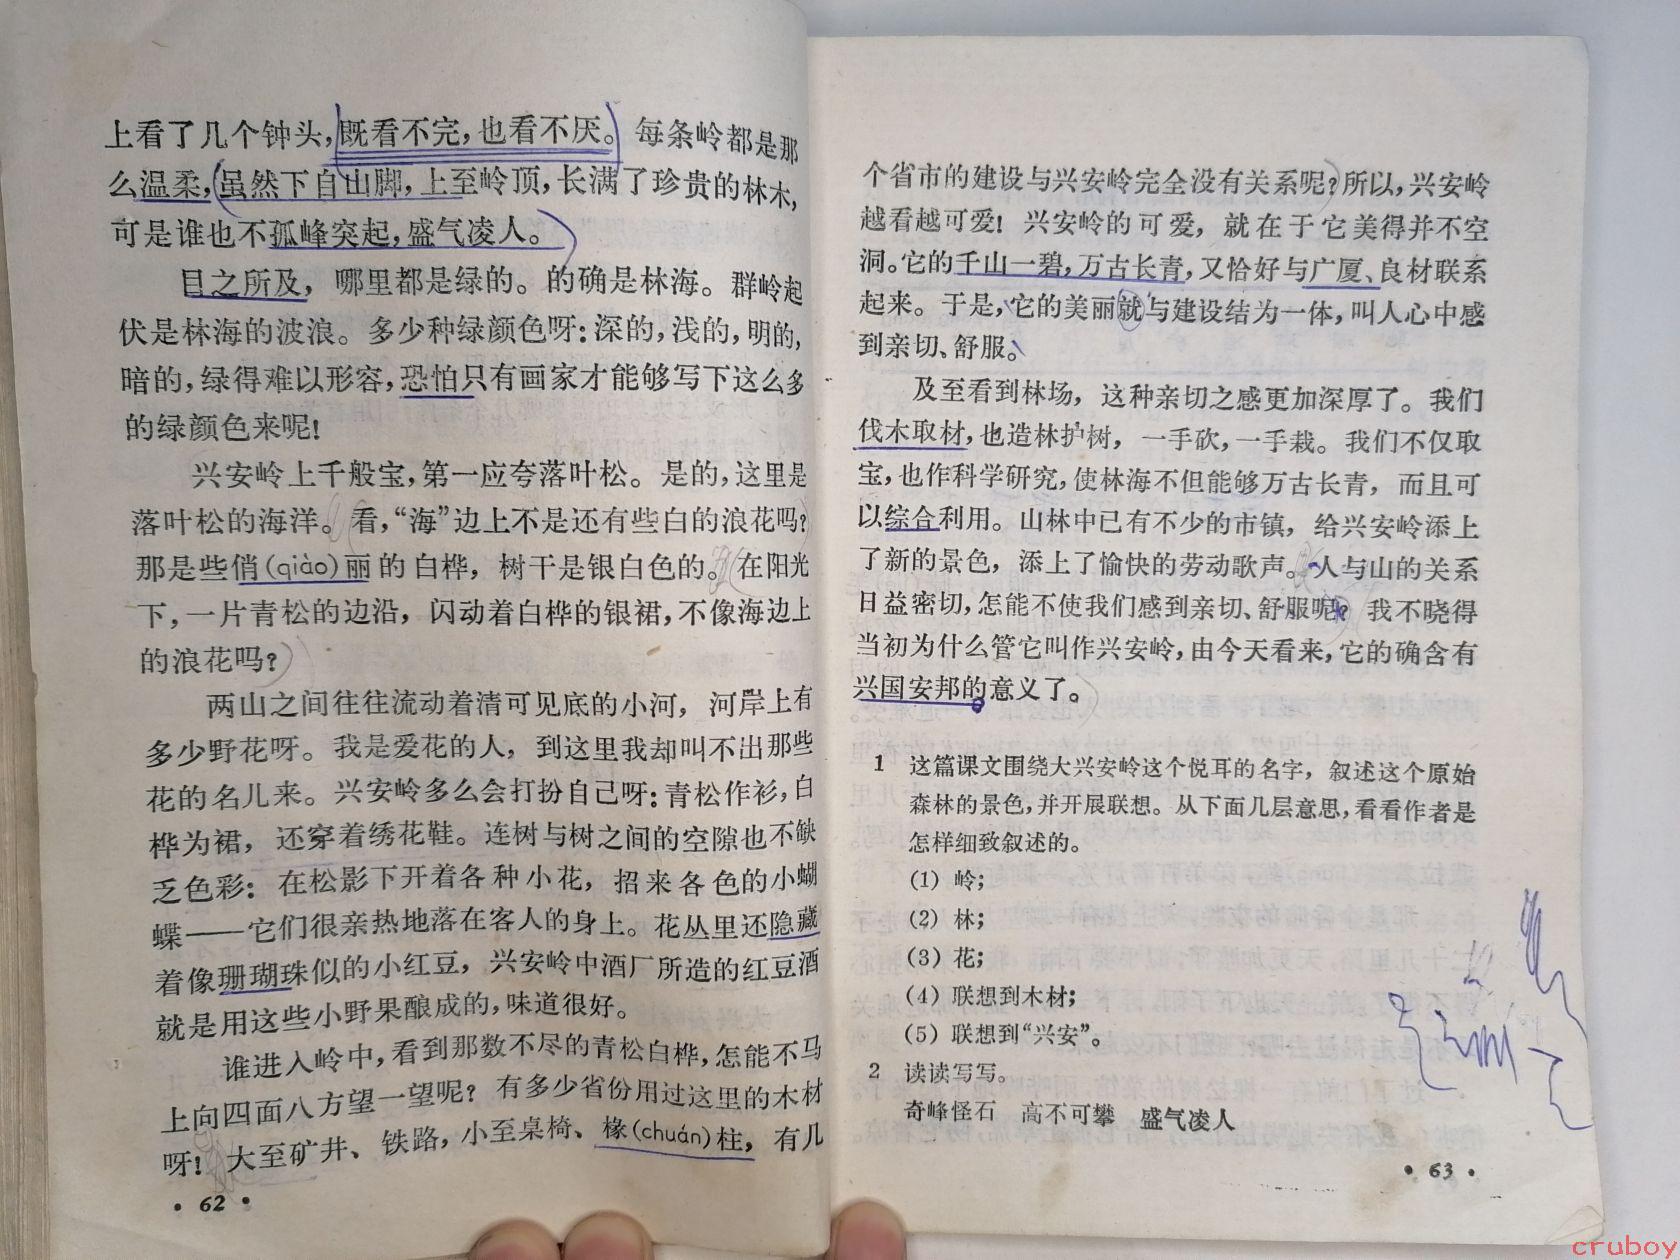 上看了几个钟头,既看不完,也看不厌。每条岭都是那
么温柔,虽然下自山脚,上至岭顶,长满了珍贵的林木,
可是谁也不孤峰突起,盛气凌人。
目之所及,哪里都是绿的。的确是林海。群岭起
伏是林海的波浪。多少种绿颜色呀:深的,浅的,明的,
暗的,绿得难以形容,恐怕只有画家才能够写下这么多
的绿颜色来呢!
兴安岭上千般宝,第一应夸落叶松。是的,这里是
落叶松的海洋。看,“海”边上不是还有些白的浪花吗?
那是些俏(qiào)丽的白桦,树干是银白色的。在阳光
下,一片青松的边沿,闪动着白桦的银裙,不像海边上
的浪花吗?
两山之间往往流动着清可见底的小河,河岸上有
多少野花呀。我是爱花的人,到这里我却叫不出那些
花的名儿来。兴安岭多么会打扮自己呀:青松作衫,白
桦为裙,还穿着绣花鞋。连树与树之间的空隙也不缺
乏色彩:在松影下开着各种小花,招来各色的小蝴
蝶——它们很亲热地落在客人的身上。花丛里还隐藏
着像珊瑚珠似的小红豆,兴安岭中酒厂所造的红豆酒
就是用这些小野果酿成的,味道很好。
谁进入岭中,看到那数不尽的青松白桦,怎能不马
上向四面八方望一望呢?有多少省份用过这里的木材
呀!大至矿井、铁路,小至桌椅、椽(chuán)柱,有几
• 62 •
个省市的建设与兴安岭完全没有关系呢?所以,兴安岭
越看越可爱!兴安岭的可爱,就在于它美得并不空
洞。它的千山一碧,万古长青,又恰好与广厦、良材联系
起来。于是,它的美丽就与建设结为一体,叫人心中感
到亲切、舒服。
及至看到林场,这种亲切之感更加深厚了。我们
伐木取材,也造林护树,一手砍,一手栽。我们不仅取
宝,也作科学研究,使林海不但能够万古长青,而且可
以综合利用。山林中已有不少的市镇,给兴安岭添上
了新的景色,添上了愉快的劳动歌声。人与山的关系
日益密切,怎能不使我们感到亲切、舒服呢?我不晓得
当初为什么管它叫作兴安岭,由今天看来,它的确含有
兴国安邦的意义了。
1 这篇课文围绕大兴安岭这个悦耳的名字,叙述这个原始
森林的景色,并开展联想。从下面几层意思,看看作者是
怎样细致叙述的。
(1)岭;
(2)林;
(3)花;
(4)联想到木材;
(5)联想到“兴安”。
2 读读写写。
奇峰怪石 高不可攀 盛气凌人
• 63 •
cruboy